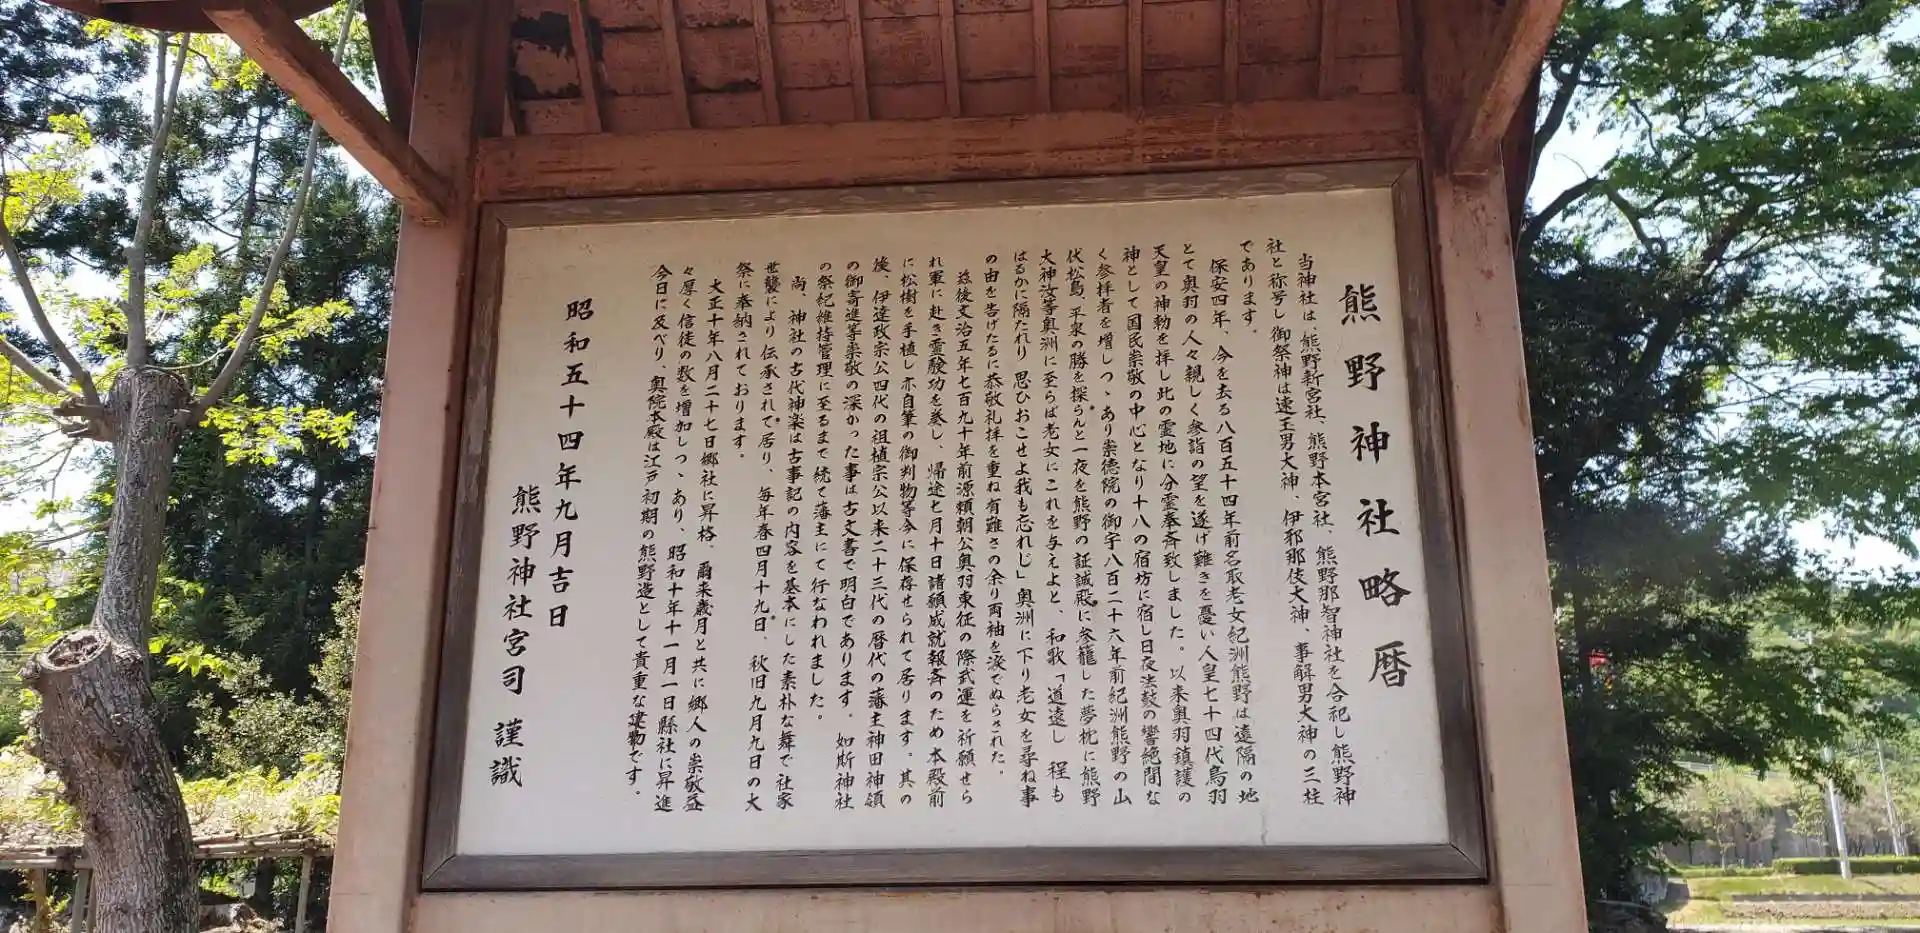 熊野神社略暦
当神社は、熊野新宮社、熊野本宮社、熊野那智神社を合祀し熊野神
社と称号し御祭神は速玉男大神、伊邪那伎大神、事解男大神の三柱
であります。
保安四年、今を去る八百五十四年前名取老女紀洲熊野は遠隔の地
とて奥羽の人々親しく参詣の望を遂げ難きを憂い人皇七十四代鳥羽
天皇の神勅を拝し此の霊地に分霊奉斉致しました。以来奥羽鎮護の
神として国民崇敬の中心となり十八の宿坊に宿し日夜法鼓の響絶間な
く参拝者を増しつゝあり崇徳院の御宇八百二十六年前紀洲熊野の山
伏松島、平泉の勝を探らんと一夜を熊野の証誠殿に参籠した夢枕に熊野
大神汝等奥洲に至らば老女にこれを与えよと、和歌「道遠し 程も
はるかに隔たれり 思ひおこせよ我も忘れじ」奥洲に下り老女を尋ね事
の由を告げたるに恭敬礼拝を重ね有難さの余り両袖を涙でぬらされた。
茲後文治五年七百九十年前源頼朝公奥羽東征の際武運を祈願せら
れ軍に赴き霊験功を奏し、帰途七月十日諸願成就報斉のため本殿前
に松樹を手植し亦自筆の御判物等今に保存せられて居ります。其の
後、伊達政宗公四代の祖植宗公以来二十三代の暦代の藩主神田神領
の御寄進等崇敬の深かった事は古文書で明白であります。如斯神社
の祭紀維持管理に至るまで続て藩主にて行なわれました。
尚、神社の古代神楽は古事記の内容を基本にした素朴な舞で社家
世襲により伝承されて居り、毎年春四月十九日、秋旧九月九日の大
祭に奉納されております。
大正十年八月二十七日郷社に昇格、爾来歳月と共に郷人の崇敬益
々厚く信徒の数を増加しつゝあり、昭和十年十一月一日縣社に昇進
今日に及べり、奥院本殿は江戸初期の熊野造として貴重な建物です。
昭和五十四年九月吉日
熊野神社宮司 謹識